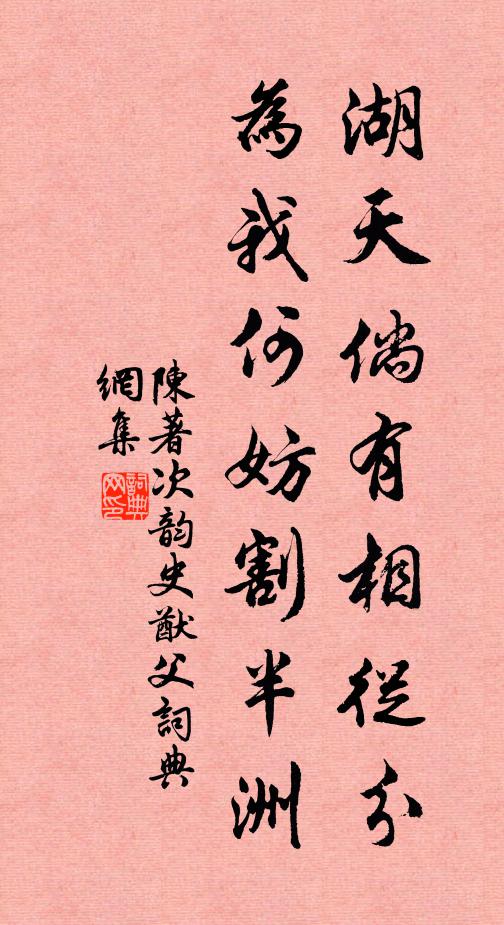 湖天倘有相從分
為我何妨割半洲
陳著次韵史猷父詞典
網集
詞典
网印